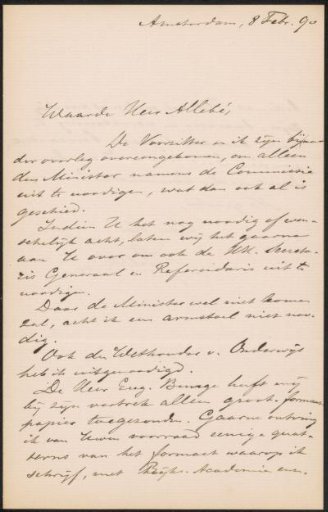 Amsterdam, 8 Febr. 90
Waarde Heer Allebé,
De Voorzitter en ik zijn bij na-
der overleg overeengekomen, om alleen
den Minister namens de Commissie
uit te noodigen, wat dan ook al is
geschied.
Indien U het nog noodig of wen-
schelijk acht, laten wij het gaarne
aan U over om ook de HH. Secreta-
ris Generaal en Referendaris uit te
noodigen.
Daar de Minister wel niet komen
zal, acht ik een armstoel niet noo-
dig.
Ook den Wethouder v. Onderwijs
heb ik uitgenoodigd.
De Heer Eug. heeft mij
bij zijn vertrek alleen groot-formaat
papier toegezonden. Gaarne ontving
ik van Uwen voorraad eenige qua-
terns van het formaat waarop ik
schrijf, met Rijks-Academie en.